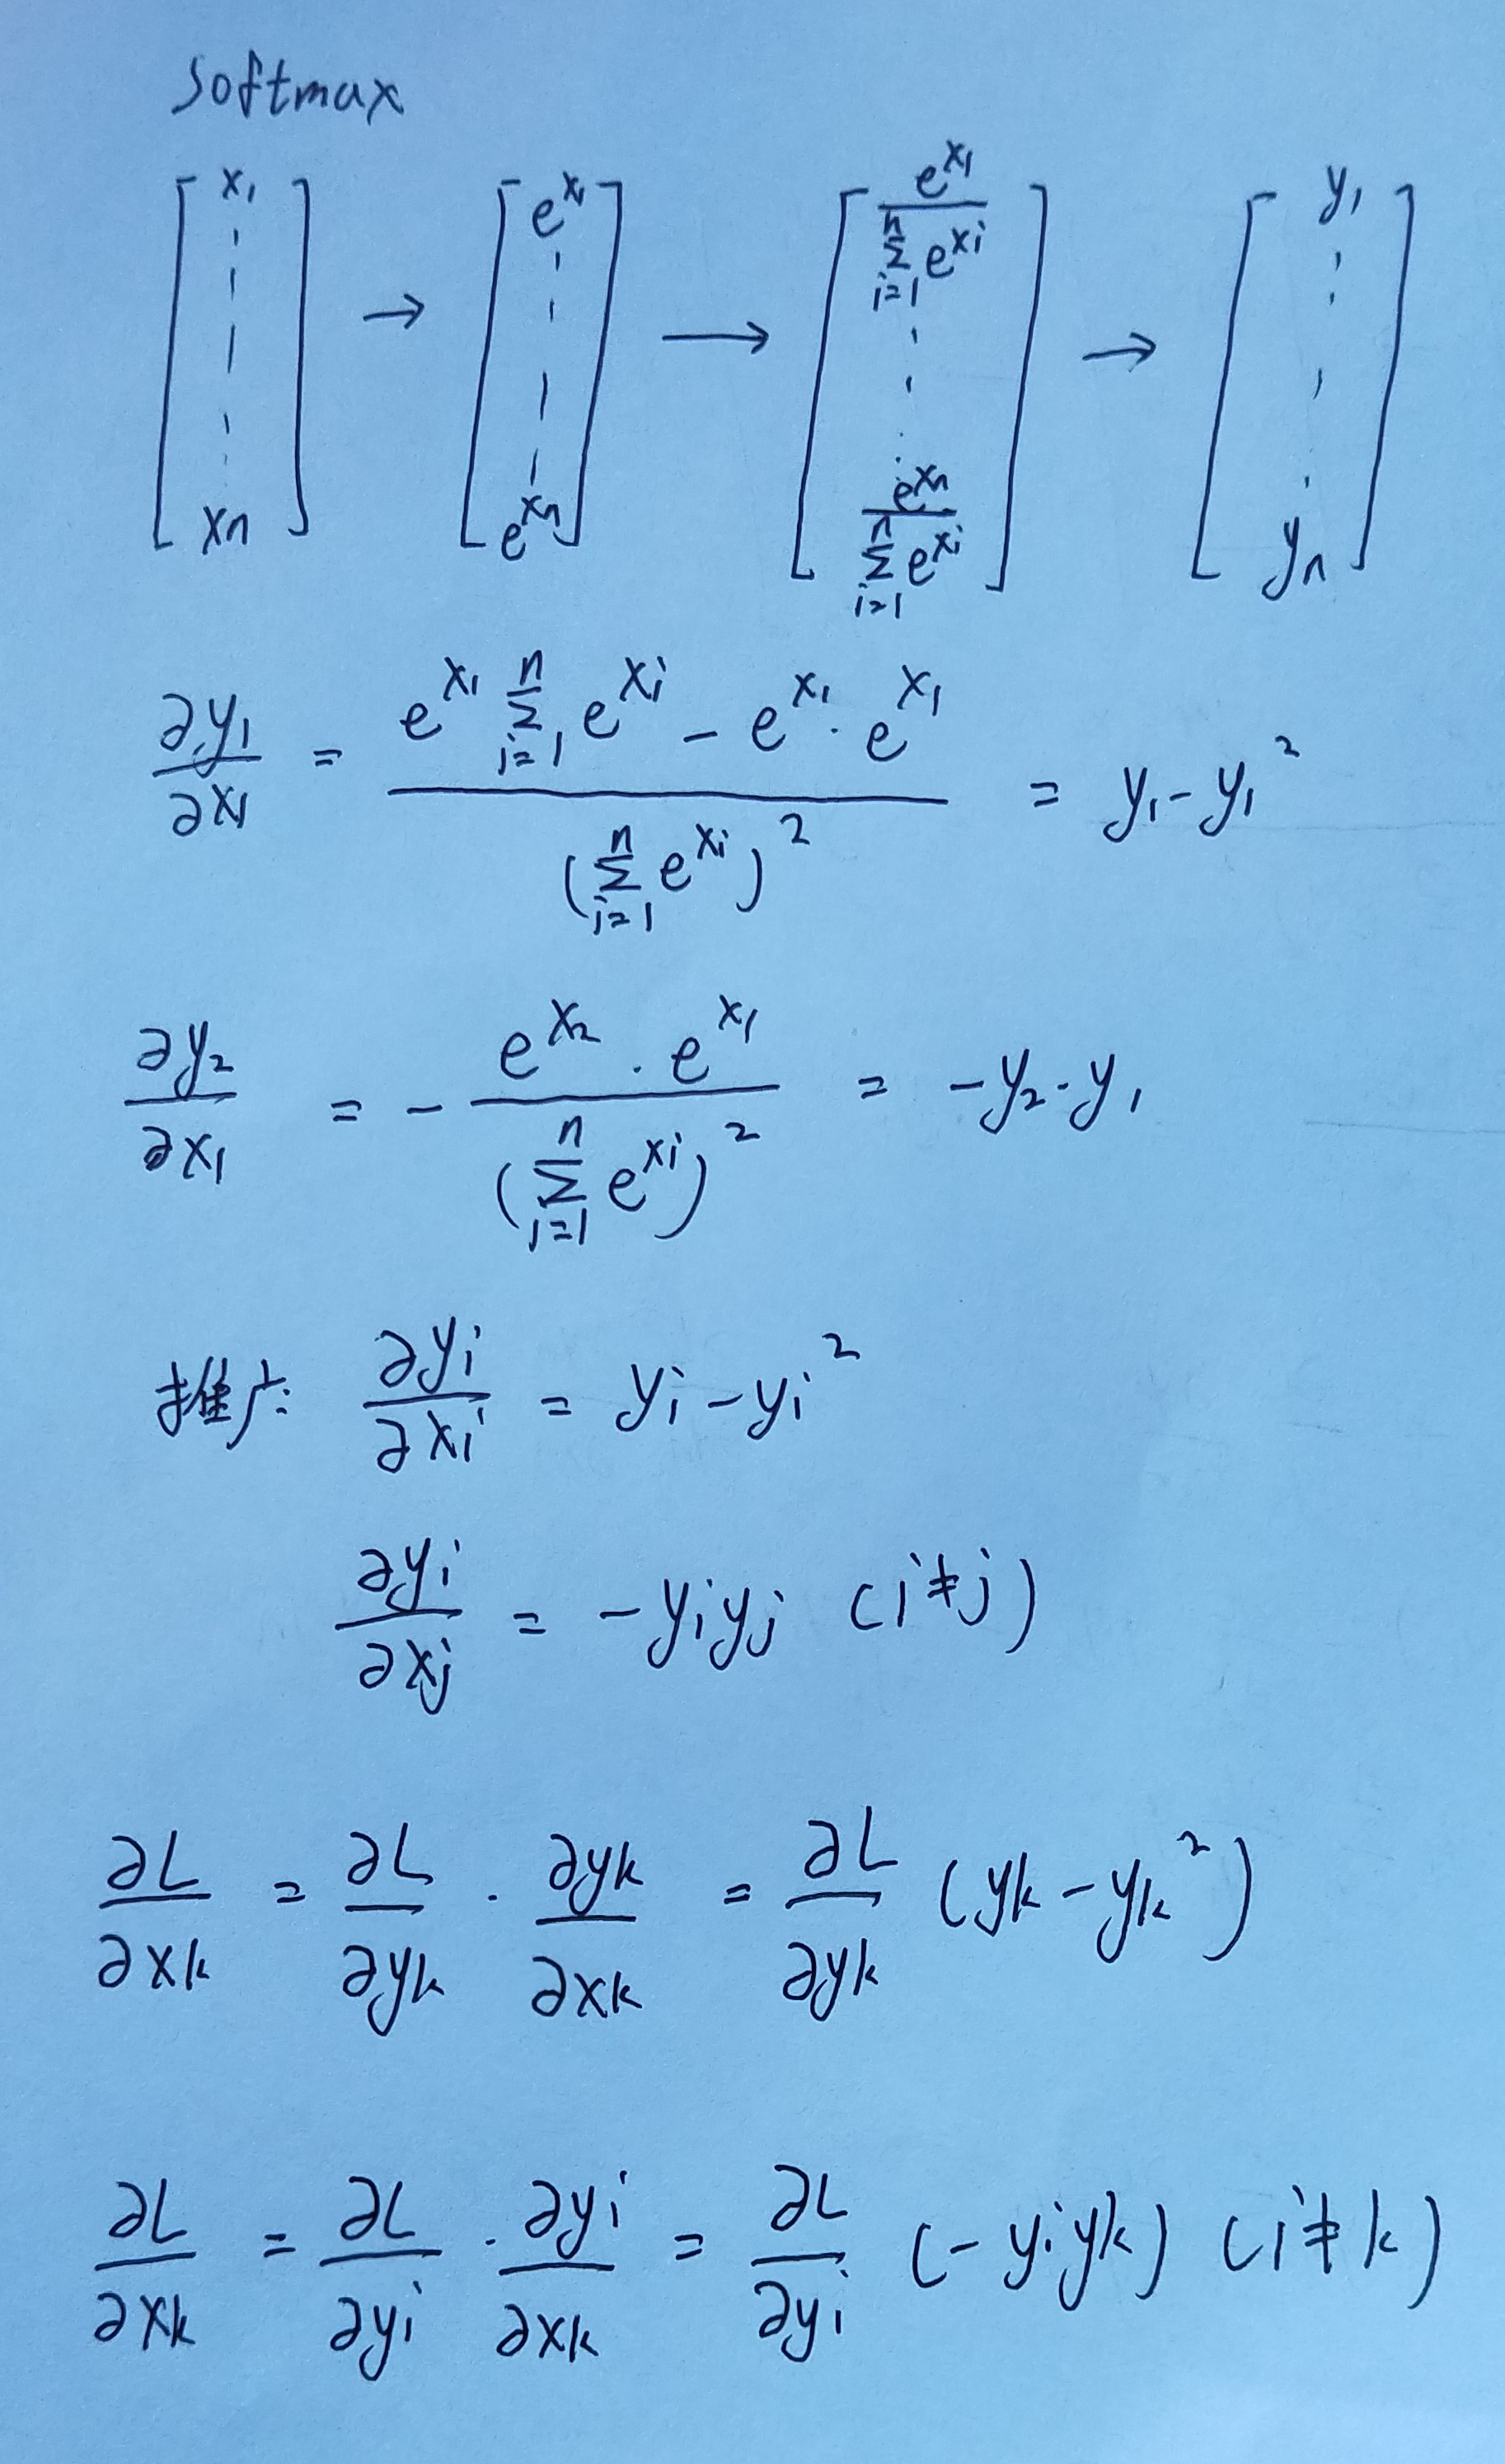 Softmax
[x₁ ⋮ xn] → [e^x₁ ⋮ e^xn] → [e^x₁ / Σ_{i=1}^{n} e^xi ⋮ e^xn / Σ_{i=1}^{n} e^xi] → [y₁ ⋮ yn]
∂y₁/∂x₁ = (e^x₁ Σ_{i=1}^{n} e^xi − e^x₁ · e^x₁) / (Σ_{i=1}^{n} e^xi)² = y₁ − y₁²
∂y₂/∂x₁ = − (e^x₂ · e^x₁) / (Σ_{i=1}^{n} e^xi)² = −y₂·y₁
推广: ∂yi/∂xi = yi − yi²
∂yi/∂xj = −yiyj (i≠j)
∂L/∂xk = ∂L/∂yk · ∂yk/∂xk = ∂L/∂yk (yk − yk²)
∂L/∂xk = ∂L/∂yi · ∂yi/∂xk = ∂L/∂yi (−yiyk) (i≠k)